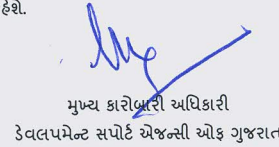 હેશે.
મુખ્ય કારોબારી અધિકારી
ડેવલપમેન્ટ સપોર્ટ એજન્સી ઓફ ગુજરાત